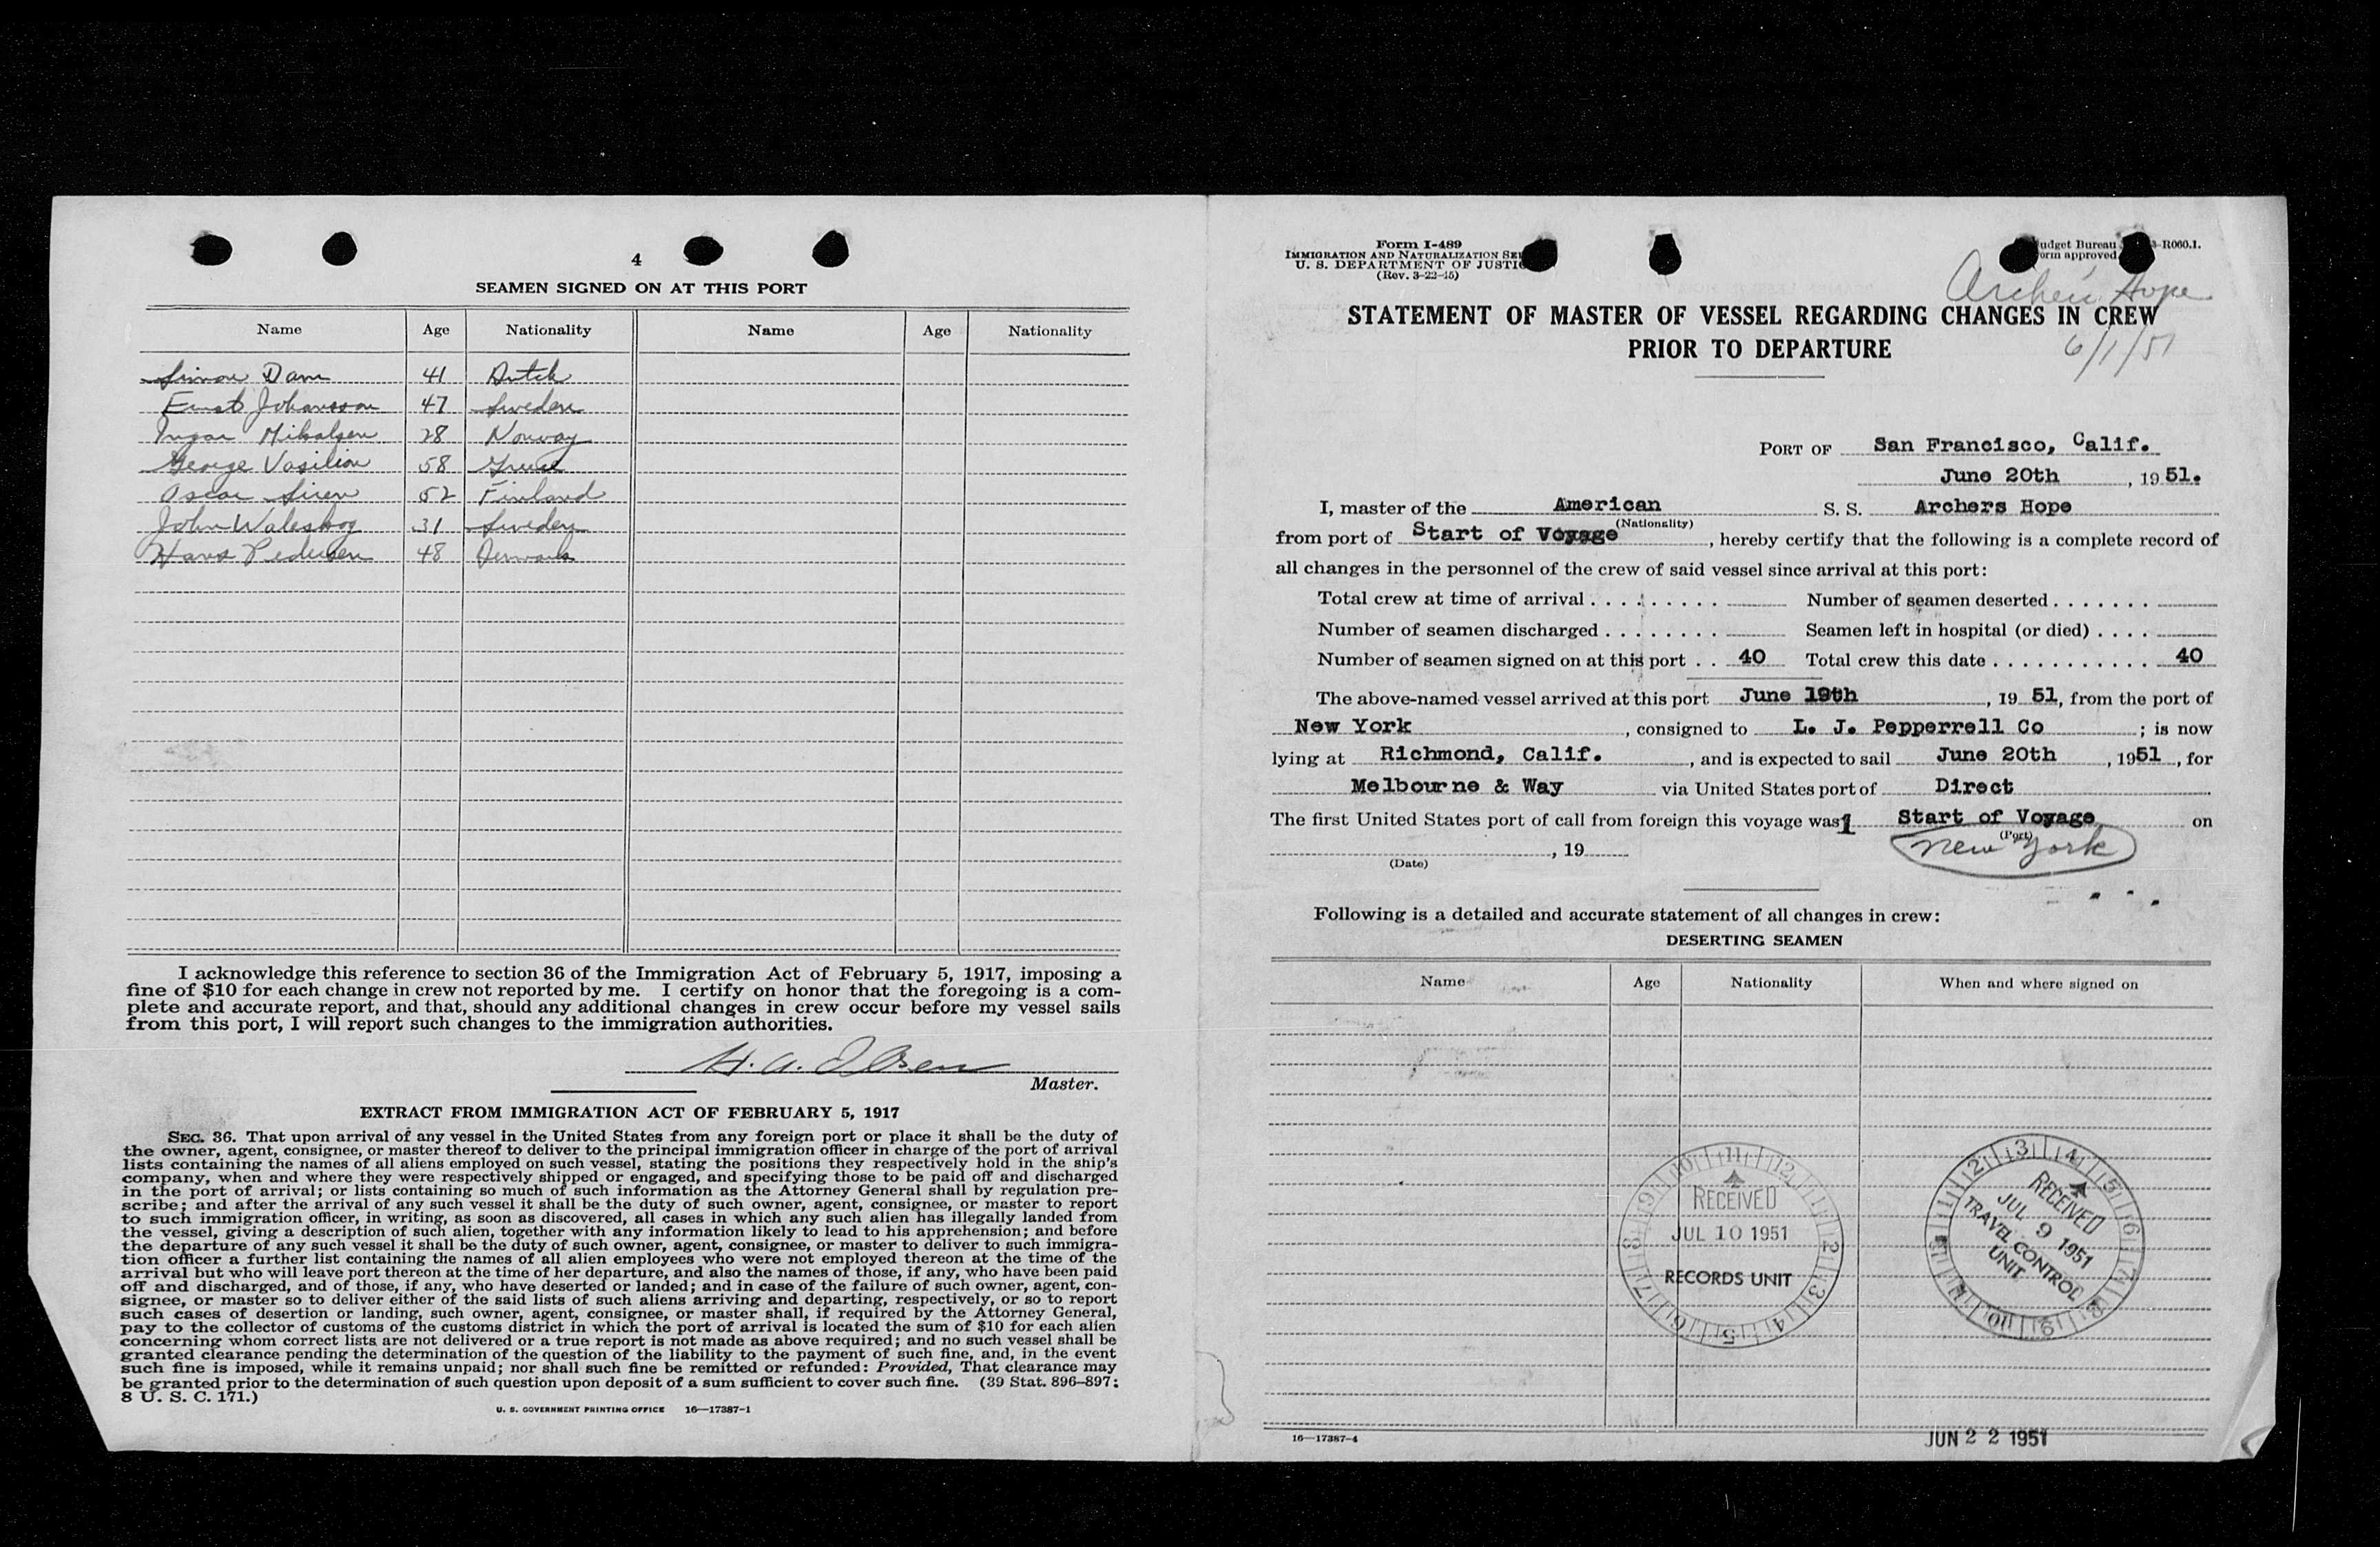 4
SEAMEN SIGNED ON AT THIS PORT
Name Age Nationality Name Age Nationality
Simon Dam 41 Dutch
Ernst Johansson 47 Sweden
Ingar Mikalsen 28 Norway
George Vasiliou 58 Greece
Oscar Siren 52 Finland
John Waleskog 31 Sweden
Hans Pedersen 48 Denmark
I acknowledge this reference to section 36 of the Immigration Act of February 5, 1917, imposing a
fine of $10 for each change in crew not reported by me. I certify on honor that the foregoing is a com-
plete and accurate report, and that, should any additional changes in crew occur before my vessel sails
from this port, I will report such changes to the immigration authorities.
H. A. Olsen
Master.
EXTRACT FROM IMMIGRATION ACT OF FEBRUARY 5, 1917
SEC. 36. That upon arrival of any vessel in the United States from any foreign port or place it shall be the duty of
the owner, agent, consignee, or master thereof to deliver to the principal immigration officer in charge of the port of arrival
lists containing the names of all aliens employed on such vessel, stating the positions they respectively hold in the ship's
company, when and where they were respectively shipped or engaged, and specifying those to be paid off and discharged
in the port of arrival; or lists containing so much of such information as the Attorney General shall by regulation pre-
scribe; and after the arrival of any such vessel it shall be the duty of such owner, agent, consignee, or master to report
to such immigration officer, in writing, as soon as discovered, all cases in which any such alien has illegally landed from
the vessel, giving a description of such alien, together with any information likely to lead to his apprehension; and before
the departure of any such vessel it shall be the duty of such owner, agent, consignee, or master to deliver to such immigra-
tion officer a further list containing the names of all alien employees who were not employed thereon at the time of the
arrival but who will leave port thereon at the time of her departure, and also the names of those, if any, who have been paid
off and discharged, and of those, if any, who have deserted or landed; and in case of the failure of such owner, agent, con-
signee, or master so to deliver either of the said lists of such aliens arriving and departing, respectively, or so to report
such cases of desertion or landing, such owner, agent, consignee, or master shall, if required by the Attorney General,
pay to the collector of customs of the customs district in which the port of arrival is located the sum of $10 for each alien
concerning whom correct lists are not delivered or a true report is not made as above required; and no such vessel shall be
granted clearance pending the determination of the question of the liability to the payment of such fine, and, in the event
such fine is imposed, while it remains unpaid; nor shall such fine be remitted or refunded: Provided, That clearance may
be granted prior to the determination of such question upon deposit of a sum sufficient to cover such fine. (39 Stat. 896–897;
8 U. S. C. 171.)
U. S. GOVERNMENT PRINTING OFFICE 16—17387-1
Form I-489
IMMIGRATION AND NATURALIZATION SE
U. S. DEPARTMENT OF JUSTIC
(Rev. 3-22-45)
udget Bureau -R060.1.
orm approved
Archer's Hope
STATEMENT OF MASTER OF VESSEL REGARDING CHANGES IN CREW
PRIOR TO DEPARTURE
6/1/51
PORT OF San Francisco, Calif.
June 20th, 19 51.
I, master of the American S. S. Archers Hope
(Nationality)
from port of Start of Voyage, hereby certify that the following is a complete record of
all changes in the personnel of the crew of said vessel since arrival at this port:
Total crew at time of arrival . . . . . . . . . Number of seamen deserted . . . . . . .
Number of seamen discharged . . . . . . . . Seamen left in hospital (or died) . . . .
Number of seamen signed on at this port . . 40 Total crew this date . . . . . . . . . . . . 40
The above-named vessel arrived at this port June 19th, 19 51, from the port of
New York, consigned to L. J. Pepperrell Co; is now
lying at Richmond, Calif., and is expected to sail June 20th, 1951, for
Melbourne & Way via United States port of Direct
The first United States port of call from foreign this voyage was1 Start of Voyage on
(Port)
New York
, 19
(Date)
Following is a detailed and accurate statement of all changes in crew:
DESERTING SEAMEN
Name Age Nationality When and where signed on
10 11 12 1 2 3 4 5 6 7 8 9
RECEIVED
JUL 10 1951
RECORDS UNIT
1 2 3 4 5 6 7 8 9 10 11 12
RECEIVED
JUL 9 1951
TRAVEL CONTROL
UNIT
16—17387-4
JUN 22 1951